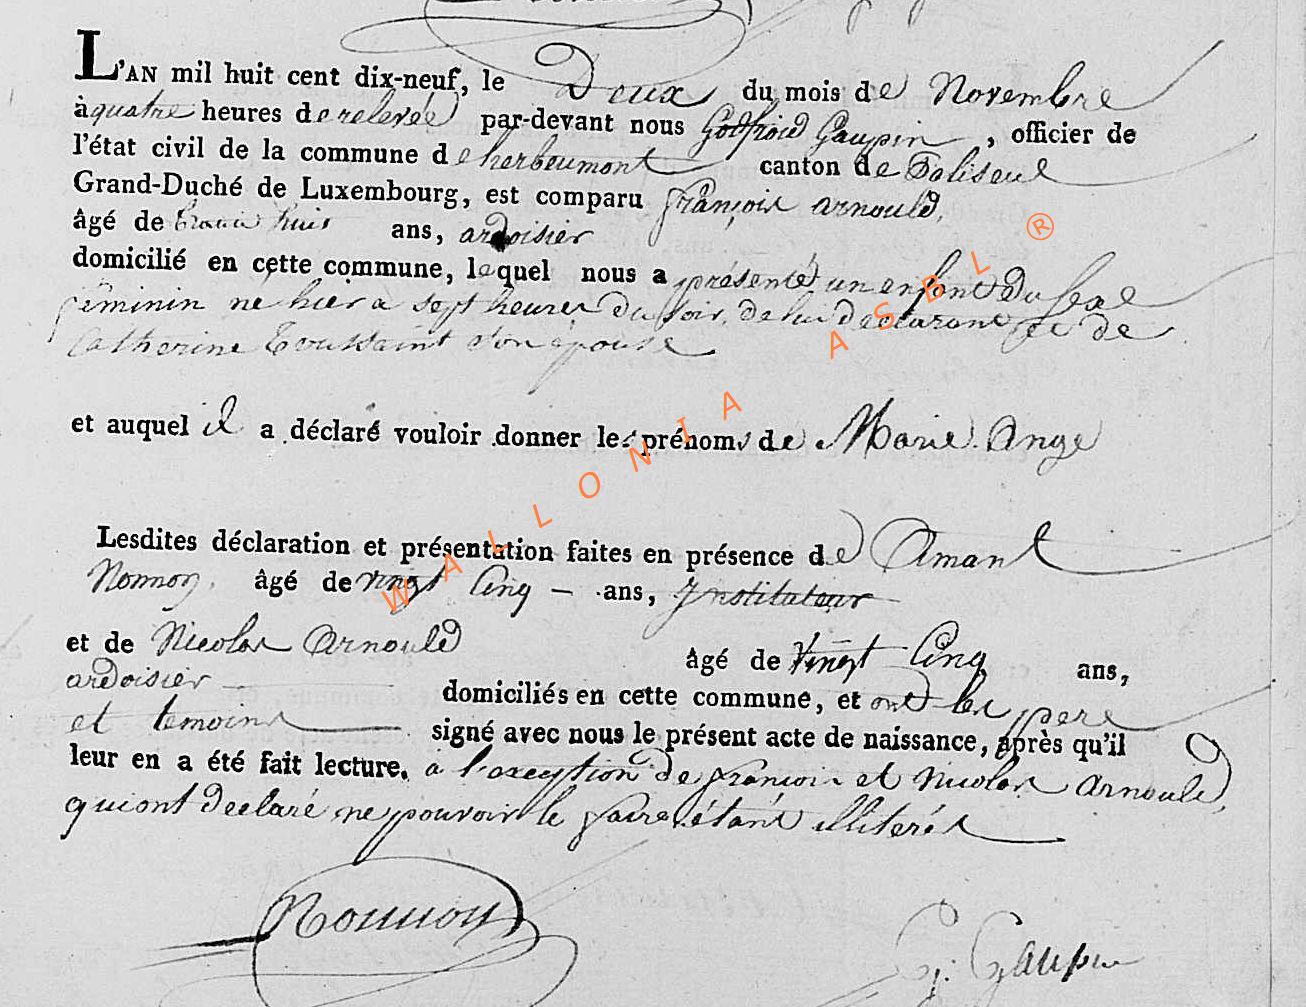 L'AN mil huit cent dix-neuf, le Deux du mois de Novembre
à quatre heures de relevée par-devant nous Godfroid Gaupin, officier de
l'état civil de la commune de herbeumont canton de Paliseul
Grand-Duché de Luxembourg, est comparu françois arnould,
âgé de huit ans, ardoisier
domicilié en cette commune, lequel nous a présenté un enfant du sexe
féminin né hier à sept heures du soir, de lui déclarant et de
Catherine Toussaint son épouse
et auquel il a déclaré vouloir donner les prénoms de Marie Ange
Lesdites déclaration et présentation faites en présence de Amant
Nonnon, âgé de vingt Cinq — ans, Instituteur
et de Nicolas Arnould âgé de Vingt Cinq ans,
ardoisier domiciliés en cette commune, et ont les pere
et temoins signé avec nous le présent acte de naissance, après qu'il
leur en a été fait lecture. a l'exception de françois et Nicolas Arnould,
qui ont declaré ne pouvoir le faire étant illiterés
Nonnon
G. Gaupin
WALLONIA ASBL ®